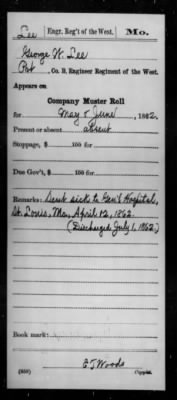 Lee Engr. Reg't of the West. Mo.
George W. Lee
Pvt, Co. B, Engineer Regiment of the West.
Appears on
Company Muster Roll
for May & June, 1862.
Present or absent absent
Stoppage, $ 100 for
Due Gov't, $ 100 for
Remarks: Sent sick to Gen'l Hospital,
St. Louis, Mo., April 12, 1862.
(Discharged July 1, 1862.)
Book mark:
E T Woods
(358) Copyist.